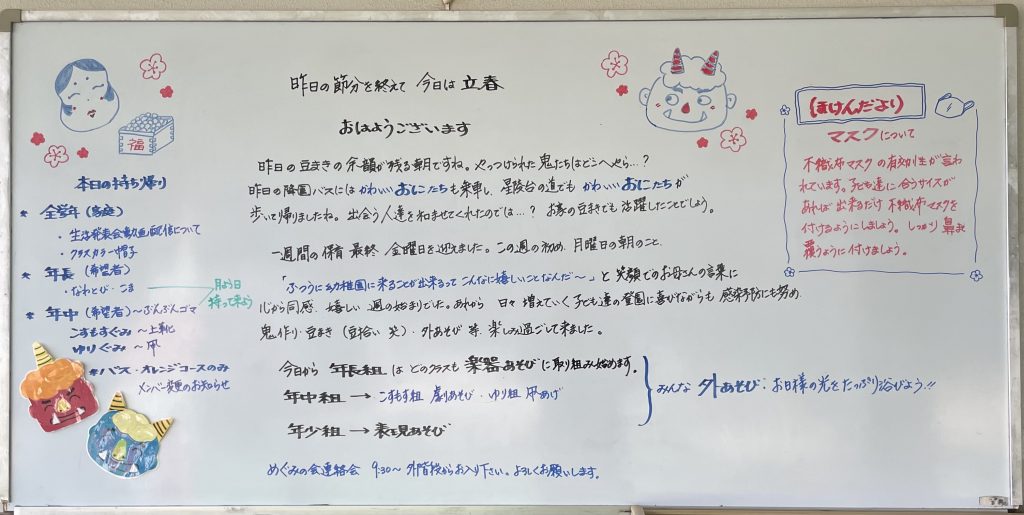 昨日の節分を終えて 今日は 立春
おはようございます
昨日の豆まきの余韻が残る朝ですね。やっつけられた鬼たちはどこへやら…?
昨日の降園バスには かわいい おにたちも乗車し、星陵台の道でも かわいい おにたちが
歩いて帰りましたね。出会う人達を和ませてくれたのでは…? お家の豆まきでも 活躍したことでしょう。
一週間の保育 最終 金曜日を迎えました。この週の初め、月曜日の朝のこと、
「ふつうに幼稚園に来ることが出来るって こんなに嬉しいことなんだ〜」と 笑顔でのお母さんの言葉に
心から同感、嬉しい 週の始まりでした。あれから 日々 増えていく 子ども達の登園に喜びながらも 感染予防にも努め、
鬼作り・豆まき(豆拾い 笑)・外あそび 等、楽しみ過ごして来ました。
今日から 年長組 は どのクラスも 楽器あそびに取り組み始めます。
年中組 → こすもす組 劇あそび・ゆり組 凧あげ
年少組 → 表現あそび
みんな 外あそび：お日様の光をたっぷり浴びよう!!
めぐみの会連絡会 9:30〜 外階段からお入り下さい。よろしくお願いします。
福
本日の持ち帰り
* 全学年(家庭)
・生活発表会動画配信について
・クラスカラー帽子
* 年長(希望者)
・なわとび・こま
月よう日
持って来よう
* 年中(希望者)〜ぶんぶんゴマ
こすもすぐみ〜上靴
ゆりぐみ〜凧
*バス・オレンジコースのみ
メンバー変更のお知らせ
ほけんだより
マスクについて
不織布マスクの有効性が言わ
れています。子ども達に合うサイズが
あれば 出来るだけ 不織布マスクを
付けるようにしましょう。しっかり 鼻も
覆うように付けましょう。